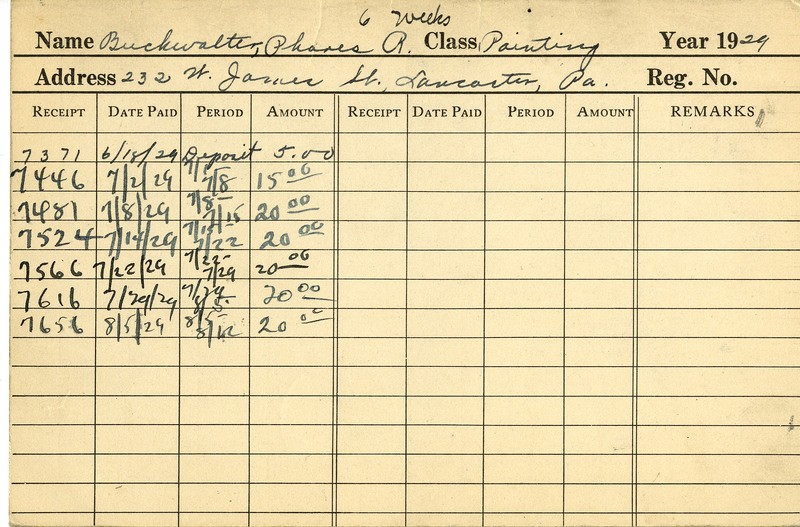 6 Weeks
Name Buckwalter, Phares R. Class Painting Year 1929
Address 232 W. James St., Lancaster, Pa. Reg. No.
RECEIPT DATE PAID PERIOD AMOUNT RECEIPT DATE PAID PERIOD AMOUNT REMARKS
7371 6/18/29 Deposit 5.00
7446 7/2/29 7/1 7/8 15 00
7481 7/8/29 7/8 - 7/15 20 00
7524 7/14/29 7/15 7/22 20 00
7566 7/22/29 7/22 - 7/29 20 00
7616 7/29/29 7/29 8/5 20 00
7656 8/5/29 8/5 - 8/12 20 00